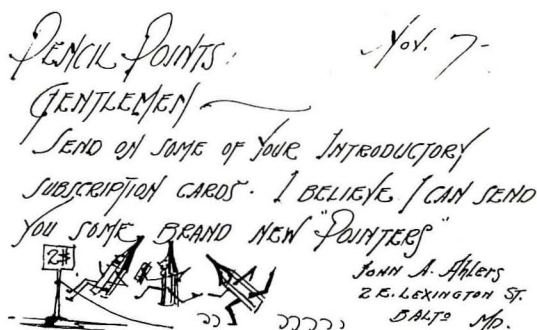 PENCIL POINTS: Nov. 7-
GENTLEMEN —
SEND ON SOME OF YOUR INTRODUCTORY
SUBSCRIPTION CARDS. I BELIEVE I CAN SEND
YOU SOME BRAND NEW "POINTERS"
2#
JOHN A. Ahlers
2 E. LEXINGTON ST.
BALTO MD.